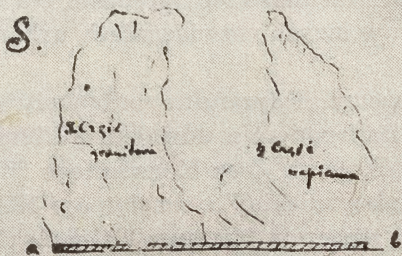 S.
część
granitowa
część
wapienna
a b